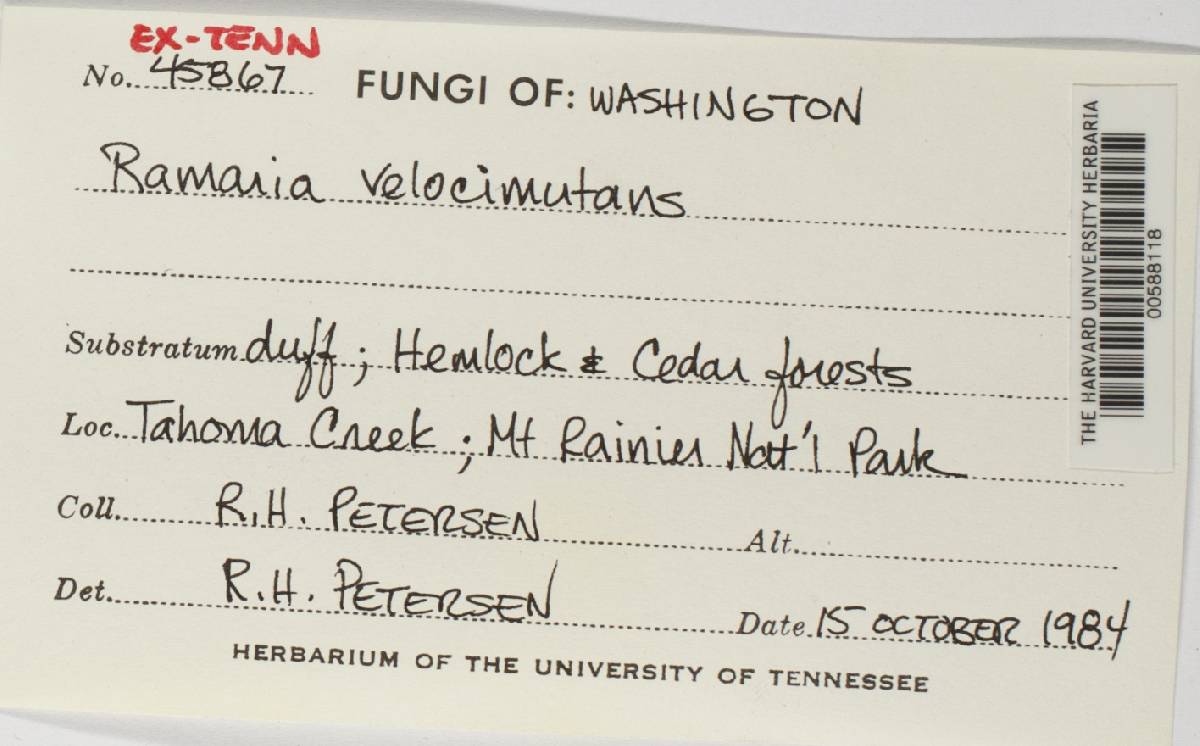 EX-TENN
No. 45867 FUNGI OF: WASHINGTON
Ramaria velocimutans
Substratum duff; Hemlock & Cedar forests
Loc. Tahoma Creek; Mt Rainier Nat'l Park
Coll. R.H. PETERSEN Alt.
Det. R.H. PETERSEN Date 15 OCTOBER 1984
HERBARIUM OF THE UNIVERSITY OF TENNESSEE
THE HARVARD UNIVERSITY HERBARIA
00588118